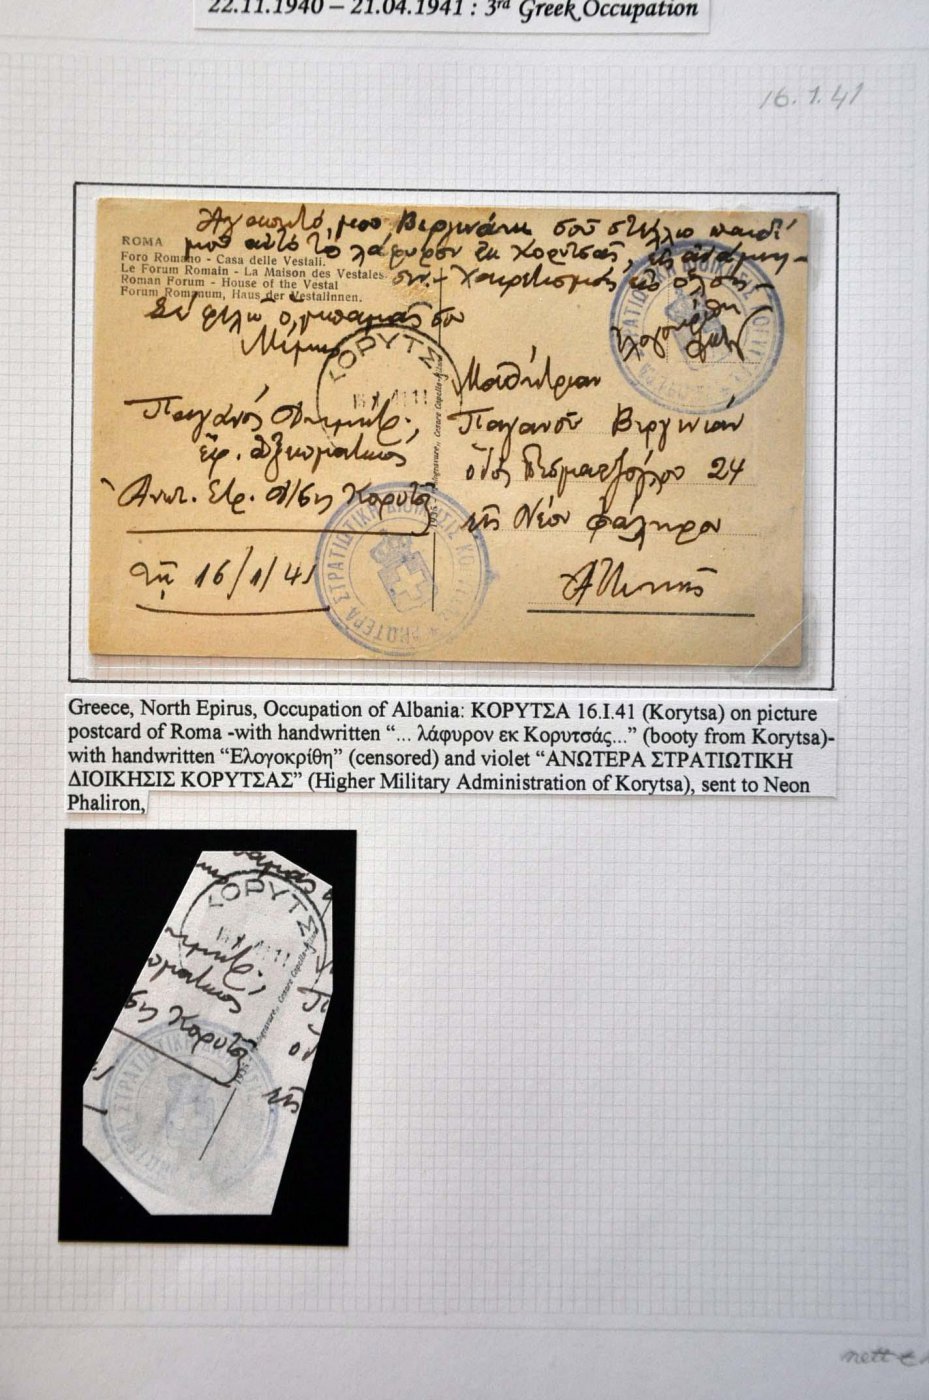 22.11.1940 – 21.04.1941 : 3rd Greek Occupation
16.1.41
Αγαπητό μου Βεργινάκι σου στέλλω παιδί
μου αυτό το λάφυρον εκ Κορυτσάς, εις ανάμνη-
σιν. – Χαιρετισμούς εις όλους
ROMA
Foro Romano - Casa delle Vestali.
Le Forum Romain - La Maison des Vestales
Roman Forum - House of the Vestal
Forum Romanum, Haus der Vestalinnen.
Σε φιλώ ο μπαμπάς σου
Μίμης
Ελογοκρίθη
ΚΟΡΥΤΣ
Παγανός Δημήτρ.,
έφ. αξιωματικός
Ανωτ. Στρ. Δ/σις
τη 16/1/41
Μαθήτριαν
Παγανού Βεργινίαν
οδός 24
εις Νέον Φάληρον
Αθήνας
ΑΝΩΤΕΡΑ ΣΤΡΑΤΙΩΤΙΚΗ ΔΙΟΙΚΗΣΙΣ ΚΟΡΥΤΣΑΣ
ΑΝΩΤΕΡΑ ΣΤΡΑΤΙΩΤΙΚΗ ΔΙΟΙΚΗΣΙΣ ΚΟΡΥΤΣΑΣ
Greece, North Epirus, Occupation of Albania: ΚΟΡΥΤΣΑ 16.I.41 (Korytsa) on picture
postcard of Roma -with handwritten “... λάφυρον εκ Κορυτσάς...” (booty from Korytsa)-
with handwritten “Ελογοκρίθη” (censored) and violet “ΑΝΩΤΕΡΑ ΣΤΡΑΤΙΩΤΙΚΗ
ΔΙΟΙΚΗΣΙΣ ΚΟΡΥΤΣΑΣ” (Higher Military Administration of Korytsa), sent to Neon
Phaliron,
ΚΟΡΥΤΣ
nett €